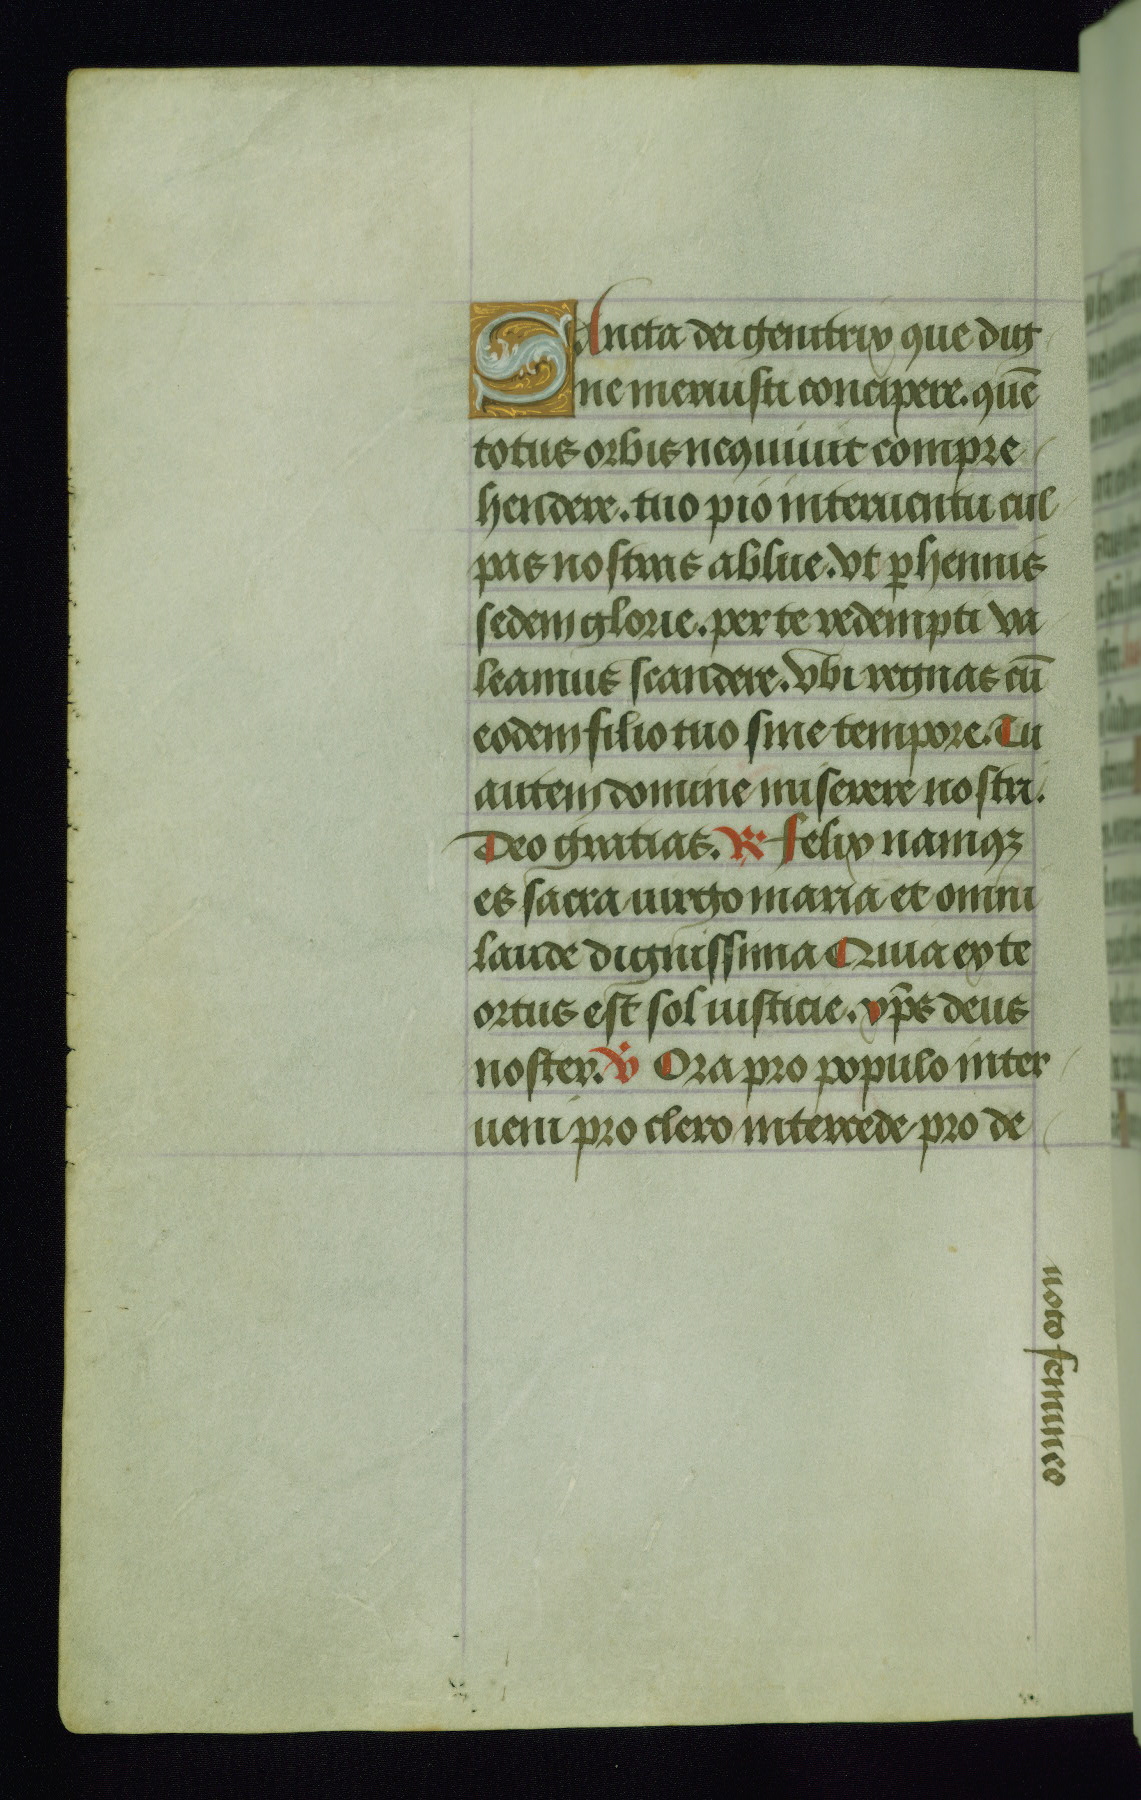 Sancta dei genitrix que dig
ne meruisti concipere. quē
totus orbis nequiuit compre
hendere. tuo pio interuentu cul
pas nostras ablue. vt ꝑhennis
sedem glorie. per te redempti va
leamus scandere. vbi regnas cū
eodem filio tuo sine tempore. Tu
autem domine miserere nostri.
Deo gratias. ℟ Felix namqꝫ
es sacra uirgo maria et omni
laude dignissima Quia ex te
ortus est sol iusticie. xp̄s deus
noster. ℣ Ora pro populo inter
ueni pro clero intercede pro de
uoto femineo